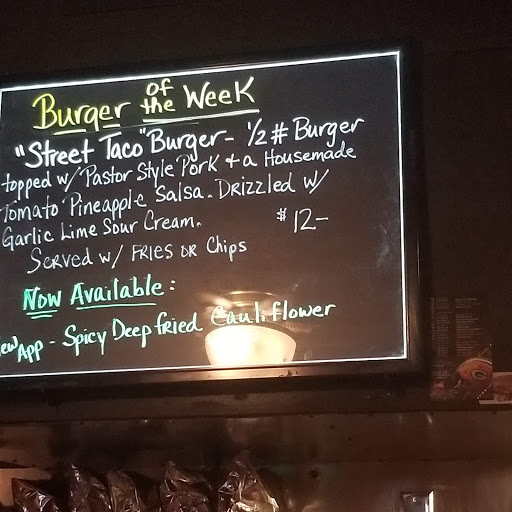 Burger of the Week
"Street Taco" Burger - 1/2# Burger
topped w/ Pastor Style Pork + a Housemade
Tomato Pineapple Salsa. Drizzled w/
Garlic Lime Sour Cream. $12-
Served w/ Fries or Chips
Now Available:
App - Spicy Deep fried Cauliflower